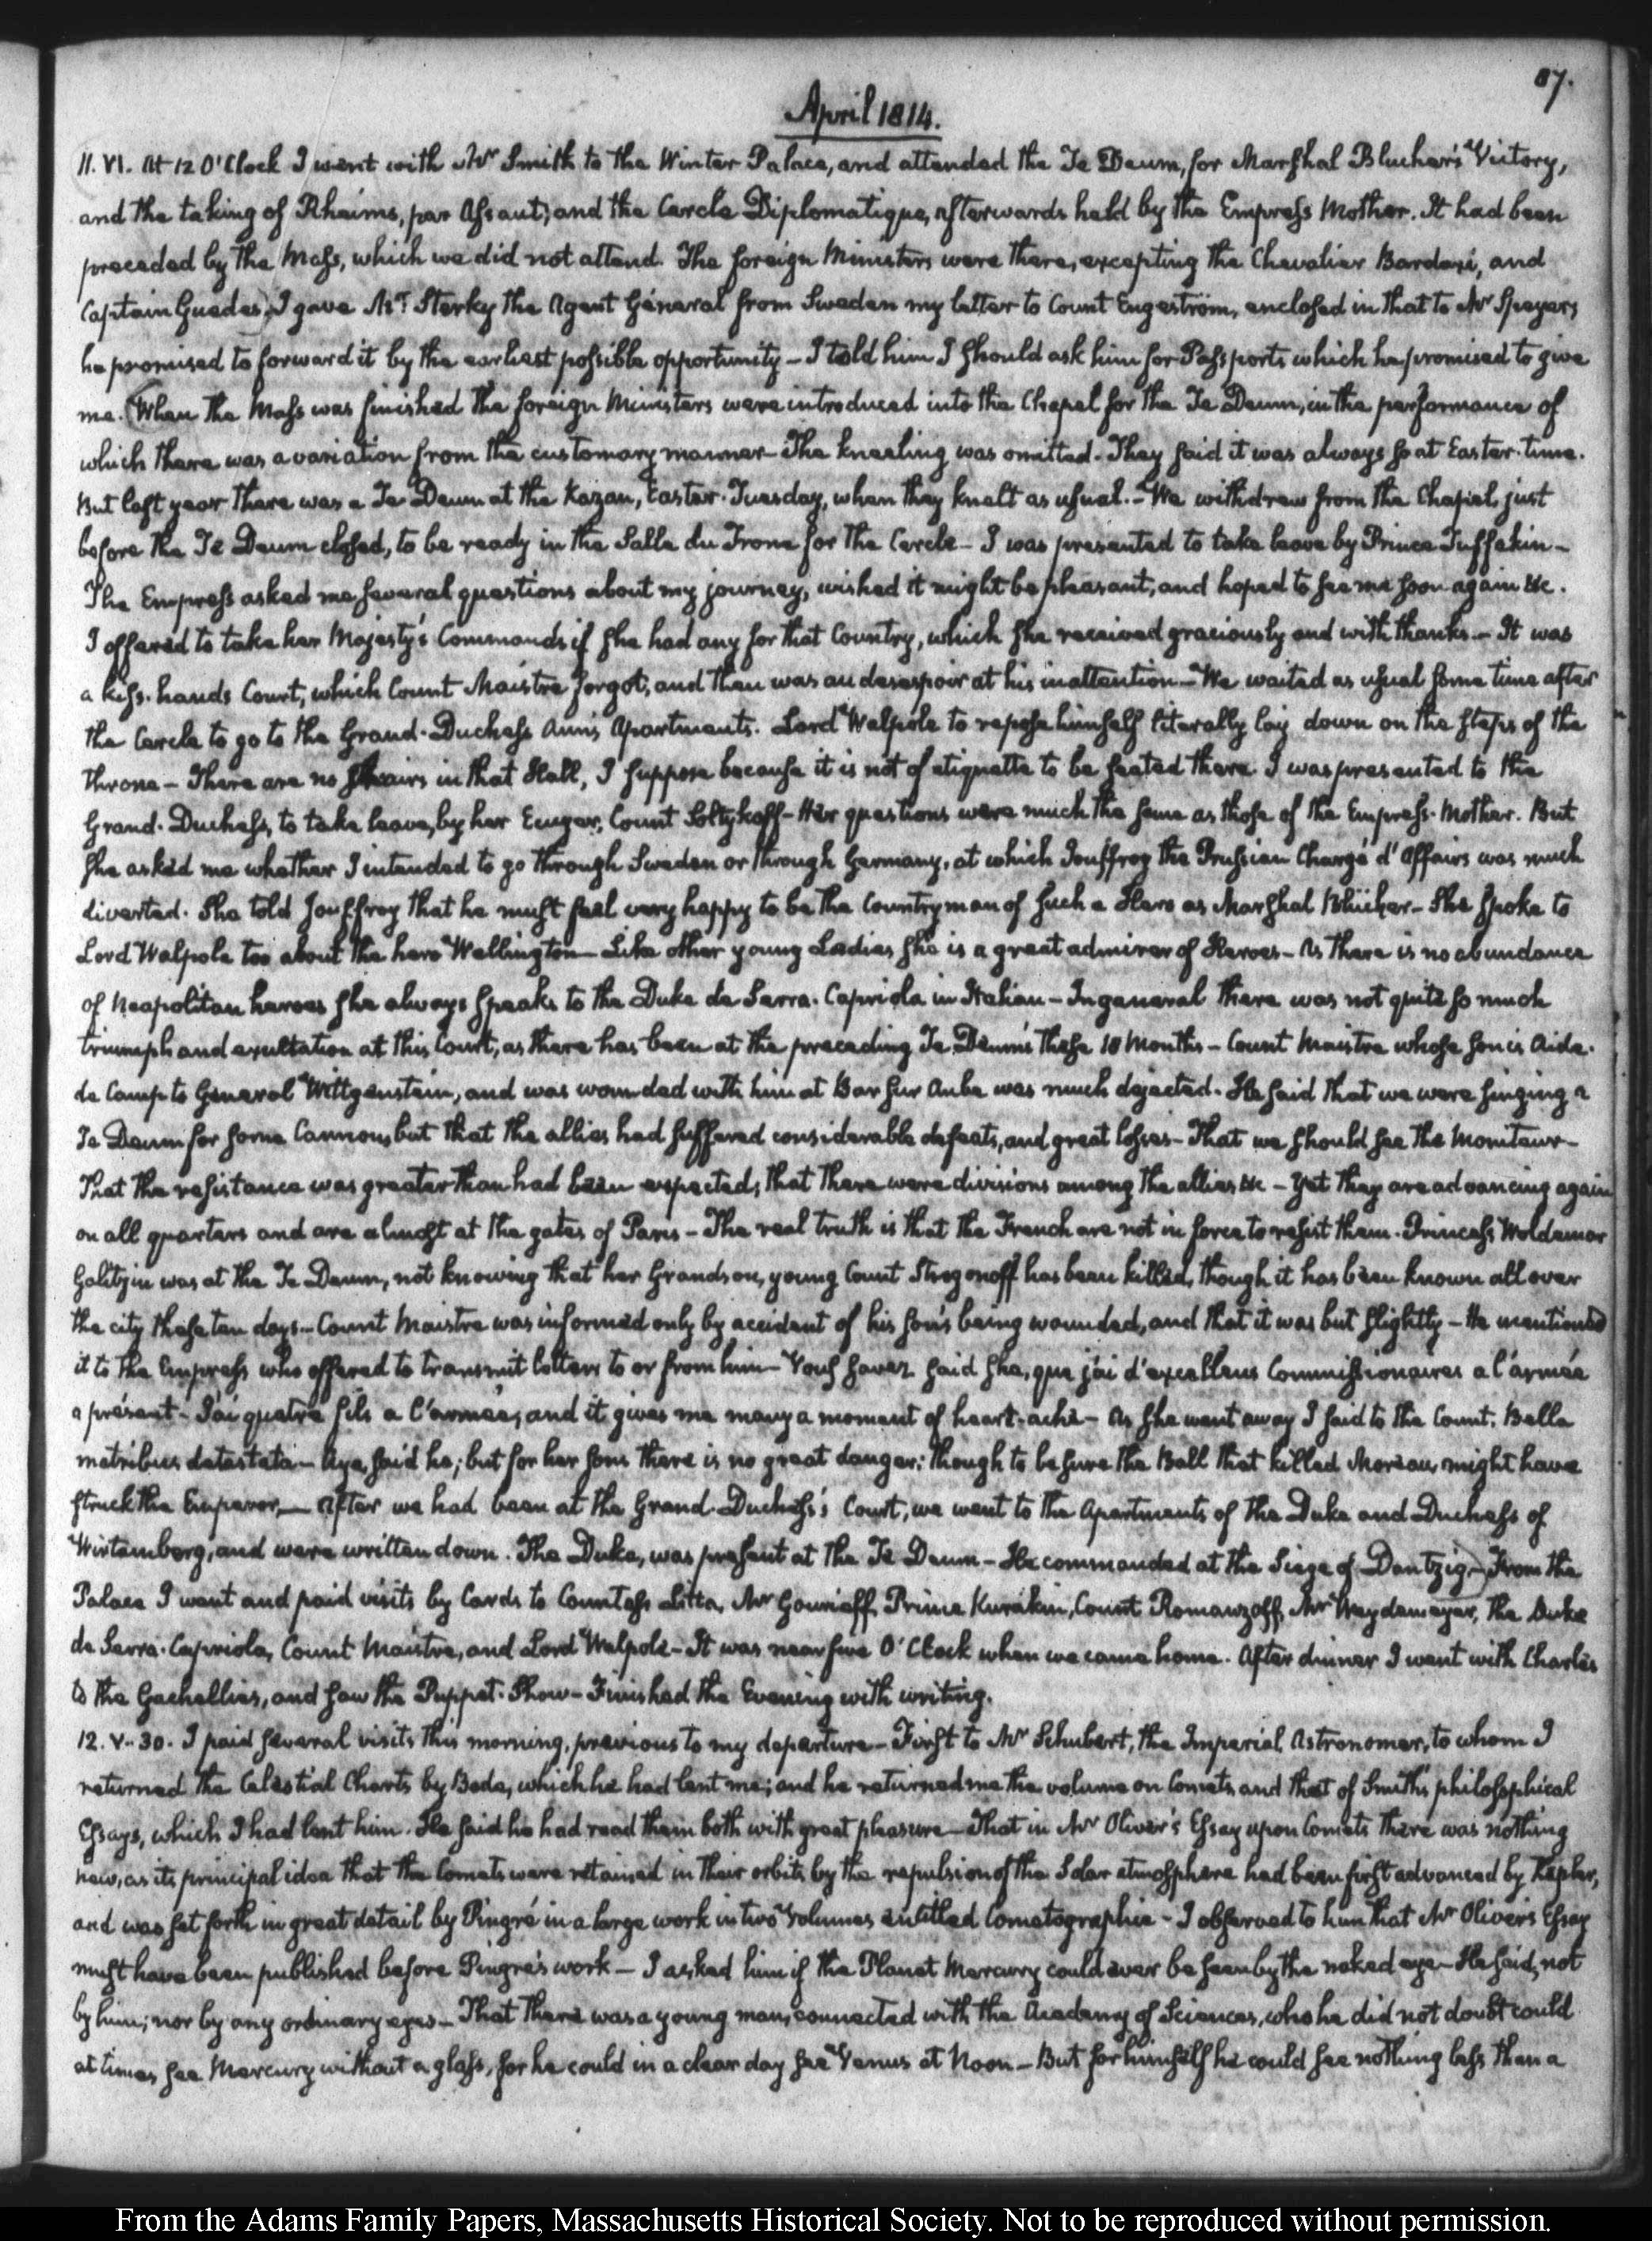 87.
April 1814.
11. VI. At 12 O'Clock I went with Mr Smith to the Winter Palace, and attended the Te Deum, for Marshal Blucher's Victory,
and the taking of Rheims, par Assaut; and the Cercle Diplomatique, afterwards held by the Empress Mother. It had been
preceded by the Mass, which we did not attend. The foreign Ministers were there, excepting the Chevalier Bardaxi, and
Captain Guedes. I gave Mr Sterky the Agent General from Sweden my letter to Count Engeström, enclosed in that to Mr Speyer,
he promised to forward it by the earliest possible opportunity – I told him I should ask him for Passports which he promised to give
me. (When the Mass was finished the foreign Ministers were introduced into the Chapel for the Te Deum, in the performance of
which there was a variation from the customary manner – The kneeling was omitted – They said it was always so at Easter-time.
But last year there was a Te Deum at the Kazan, Easter-Tuesday, when they knelt as usual. – We withdrew from the Chapel, just
before the Te Deum closed, to be ready in the Salle du Trone for the Cercle – I was presented to take leave by Prince Tuffakin –
The Empress asked me several questions about my journey, wished it might be pleasant, and hoped to see me soon again &c.
I offered to take her Majesty's Commands if she had any for that Country, which she received graciously and with thanks. – It was
a kiss-hands Court, which Count Maistre forgot, and then was au desespoir at his inattention – We waited as usual some time after
the Cercle to go to the Grand-Duchess Ann's Apartments. Lord Walpole to repose himself literally lay down on the steps of the
throne – There are no chairs in that Hall, I suppose because it is not of etiquette to be seated there. I was presented to the
Grand-Duchess, to take leave, by her Ecuyer, Count Soltykoff – Her questions were much the same as those of the Empress-Mother. But
she asked me whether I intended to go through Sweden or through Germany, at which Jouffroy the Prussian Chargé d'Affairs was much
diverted. She told Jouffroy that he must feel very happy to be the Countryman of such a Hero as Marshal Blücher – She spoke to
Lord Walpole too about the hero Wellington – Like other young Ladies she is a great admirer of Heroes – As there is no abundance
of Neapolitan heroes she always speaks to the Duke de Serra-Capriola in Italian – In general there was not quite so much
triumph and exultation at this Court, as there has been at the preceding Te Deum's these 18 Months – Count Maistre whose son is Aide-
de Camp to General Wittgenstein, and was wounded with him at Bar sur Aube was much dejected. He said that we were singing a
Te Deum for some Cannon, but that the allies had suffered considerable defeats, and great losses – That we should see the Moniteur –
That the resistance was greater than had been expected, that there were divisions among the allies &c – Yet they are advancing again
on all quarters and are almost at the gates of Paris – The real truth is that the French are not in force to resist them. Princess Woldemar
Galitzin was at the Te Deum, not knowing that her Grandson, young Count Strogonoff has been killed, though it has been known all over
the city these ten days – Count Maistre was informed only by accident of his son's being wounded, and that it was but slightly – He mentioned
it to the Empress who offered to transmit letters to or from him – Vous savez said she, que j'ai d'excellens Commissionaires a l'armée
a présent – J'ai quatre fils a l'armée; and it gives me many a moment of heart-ache – As she went away I said to the Count. Bella
matribus detestata – Aye, said he; but for her sons there is no great danger: though to be sure the Ball that killed Moreau, might have
struck the Emperor. – After we had been at the Grand-Duchess's Court, we went to the Apartments of the Duke and Duchess of
Wirtemberg, and were written down. The Duke, was present at the Te Deum – He commanded at the Siege of Dantzig.) – From the
Palace I went and paid visits by Cards to Countess Litta, Mr Gourieff, Prince Kurakin, Count Romanzoff, Mr Weydemeyer, the Duke
de Serra-Capriola, Count Maistre, and Lord Walpole – It was near five O'Clock when we came home. After dinner I went with Charles
to the Gachellies, and saw the Puppet-Show – Finished the Evening with writing.
12. V-30. I paid several visits this morning, previous to my departure – First to Mr Schubert, the Imperial Astronomer, to whom I
returned the Celestial Charts by Bode, which he had lent me; and he returned me the volume on Comets and that of Smith's philosophical
Essays, which I had lent him. He said he had read them both with great pleasure – That in Mr Oliver's Essay upon Comets there was nothing
new, as its principal idea that the Comets were retained in their orbits by the repulsion of the Solar atmosphere had been first advanced by Kepler,
and was set forth in great detail by Pingré in a large work in two Volumes entitled Cometographie – I observed to him that Mr Oliver's Essay
must have been published before Pingré's work – I asked him if the Planet Mercury could ever be seen by the naked eye – He said, not
by him; nor by any ordinary eyes – That there was a young man, connected with the Academy of Sciences, who he did not doubt could
at times see Mercury without a glass, for he could in a clear day see Venus at Noon – But for himself he could see nothing less than a
From the Adams Family Papers, Massachusetts Historical Society. Not to be reproduced without permission.